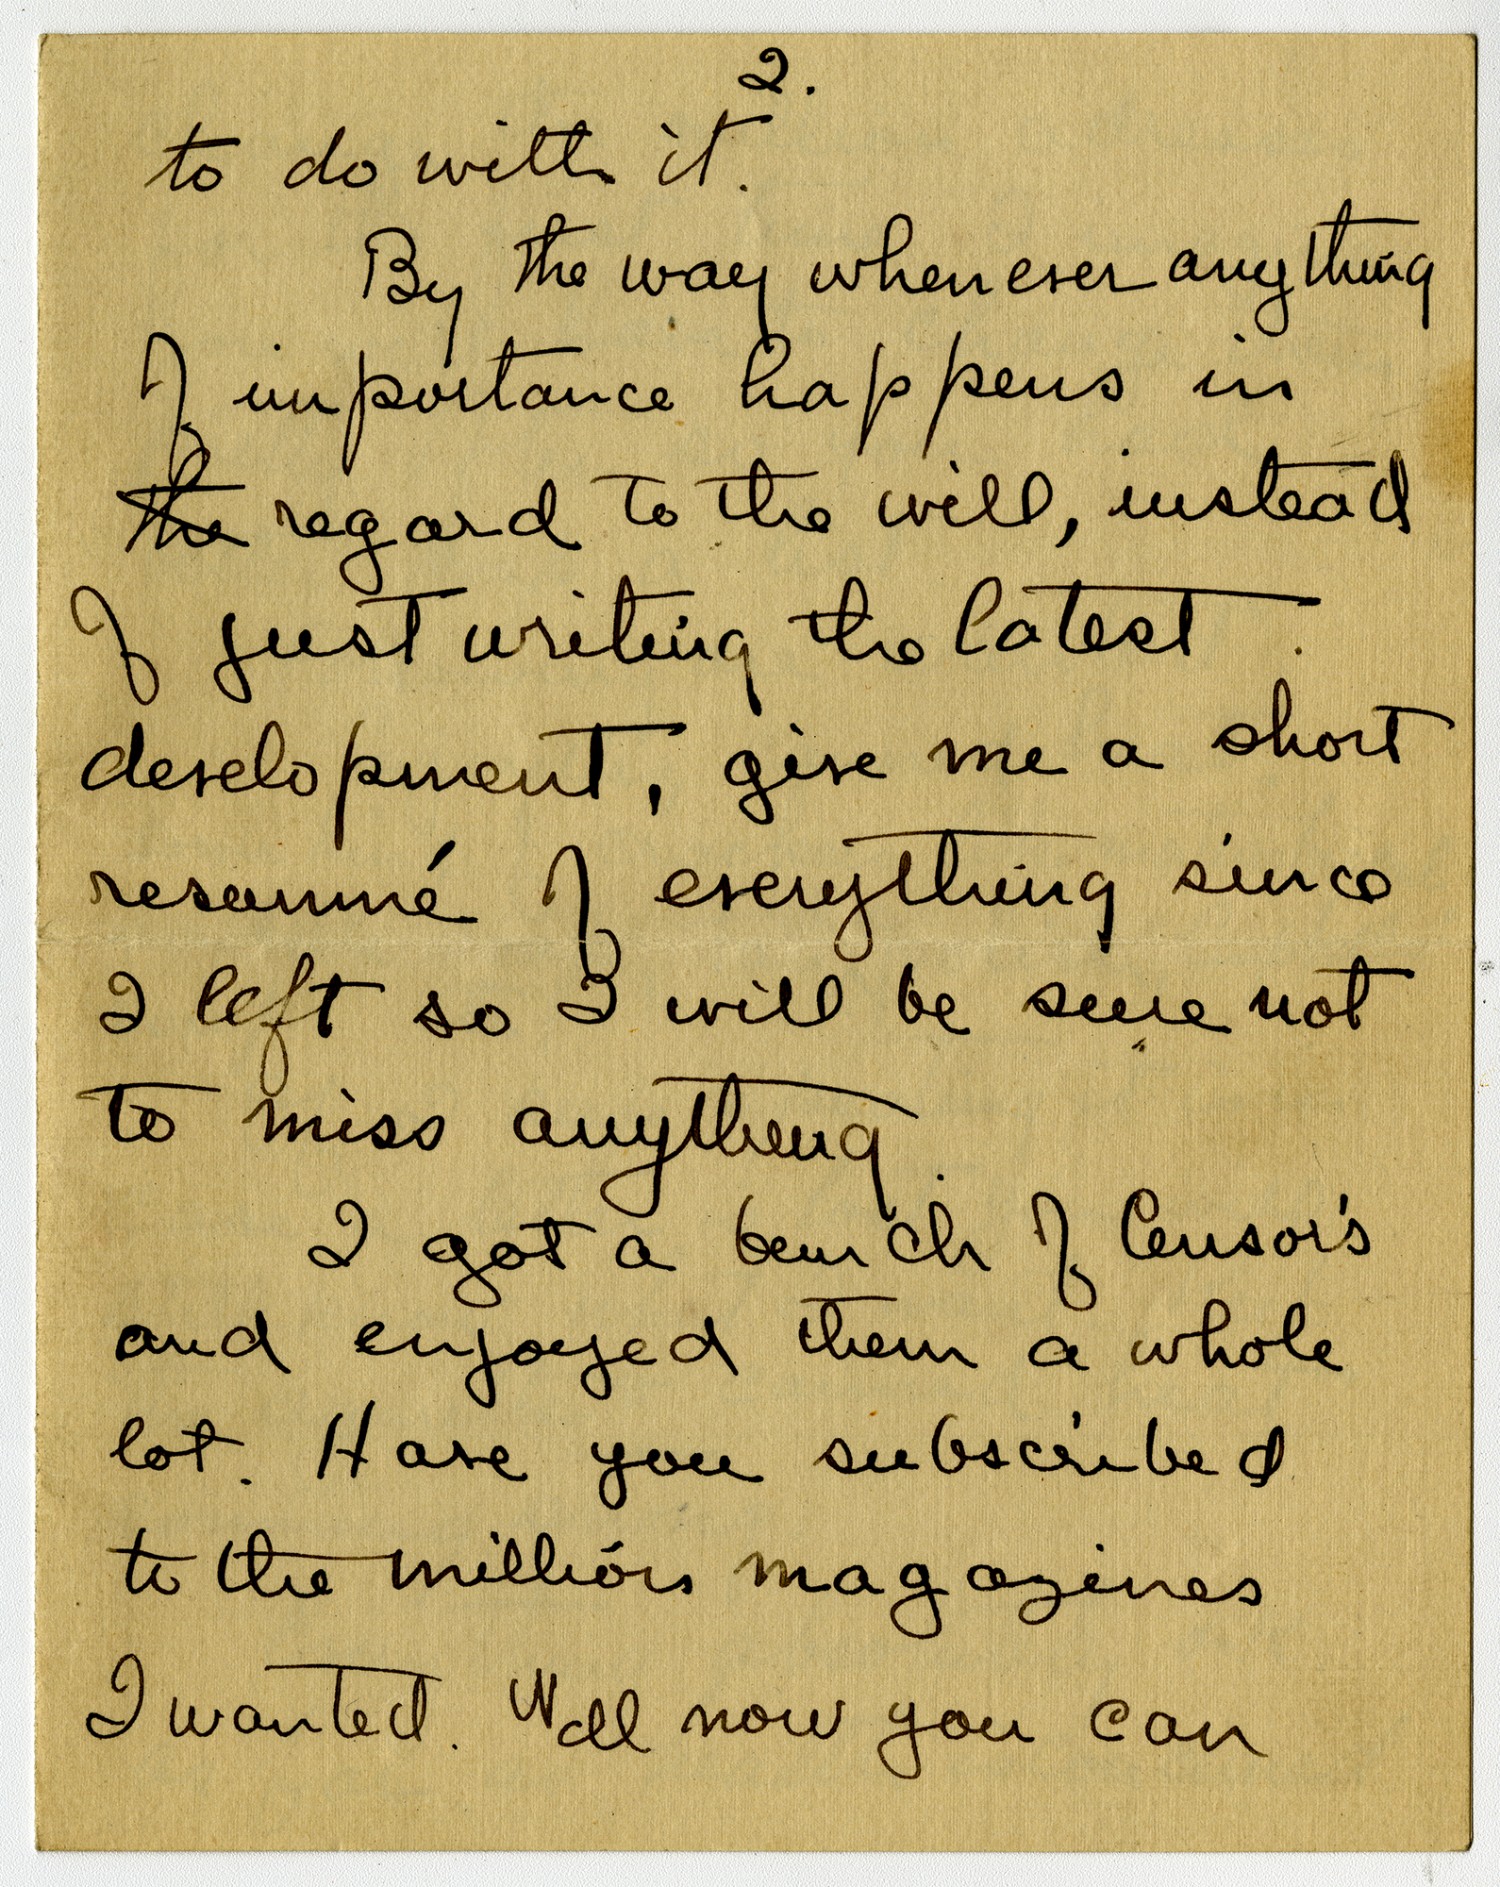 2.
to do with it.
By the way whenever anything
of importance happens in
the regard to the will, instead
of just writing the latest
development, give me a short
resumé of everything since
I left so I will be sure not
to miss anything.
I got a bunch of Censor's
and enjoyed them a whole
lot. Have you subscribed
to the million magazines
I wanted. Well now you can